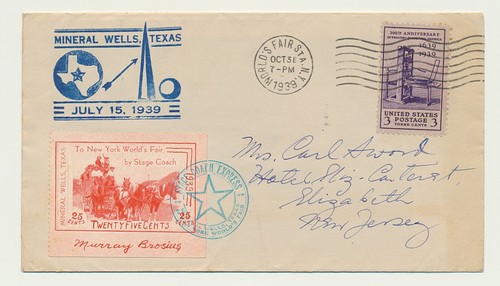 MINERAL WELLS, TEXAS
JULY 15, 1939
WORLD'S FAIR STA. N.Y.
OCT 31
7-PM
1939
300TH ANNIVERSARY
1639
1939
UNITED STATES
3 POSTAGE 3
THREE CENTS
MINERAL WELLS, TEXAS
To New York World's Fair
by Stage Coach
1939
25 CENTS
TWENTY FIVE CENTS
25 CENTS
Murray Brosius
COACH EXPRESS
WORLD'S FAIR
Mrs. Carl Sword
Hotel Eliz-Carteret,
Elizabeth
New Jersey